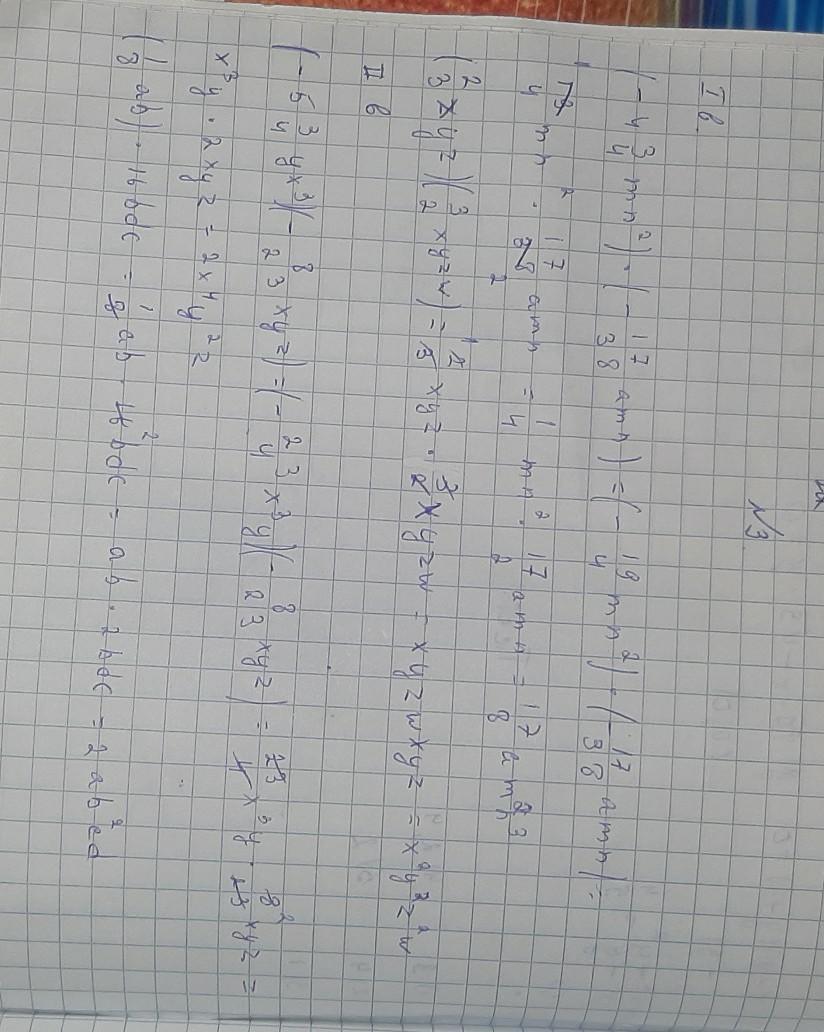 №3
I в.
(-4 3/4 mn²)·(-17/38 amn)=(-19/4 mn²)·(-17/38 amn)=
19/4 mn² · 17/38 2 amn = 1/4 mn² · 17/2 amn = 17/8 am²n³
(2/3 xyz)(3/2 xyzw) = 2/3 xyz · 3/2 xyzw = xyzwxyz = x²y²z²w
II в
(-5 3/4 yx³)(-8/23 xyz)=(-23/4 x³y)(-8/23 xyz) = 23/4 x³y · 8²/23 xyz =
x³y · 2xyz = 2x⁴y²z
(1/8 ab)·16bdc = 1/8 ab · 16² bdc = ab · 2bdc = 2ab²cd